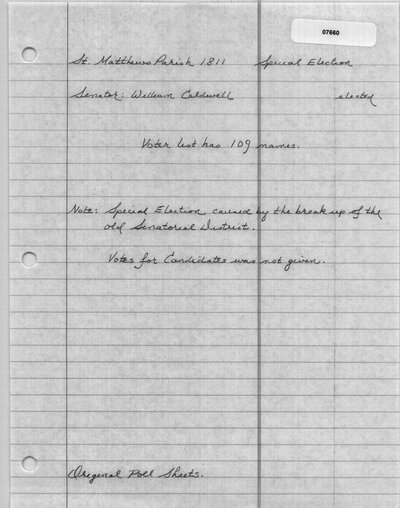 07660
St. Matthews Parish 1811 Special Election
Senator: William Caldwell elected
Voter list has 109 names.
Note: Special Election caused by the break up of the
old Senatorial District.
Votes for Candidates was not given.
Original Poll Sheets.